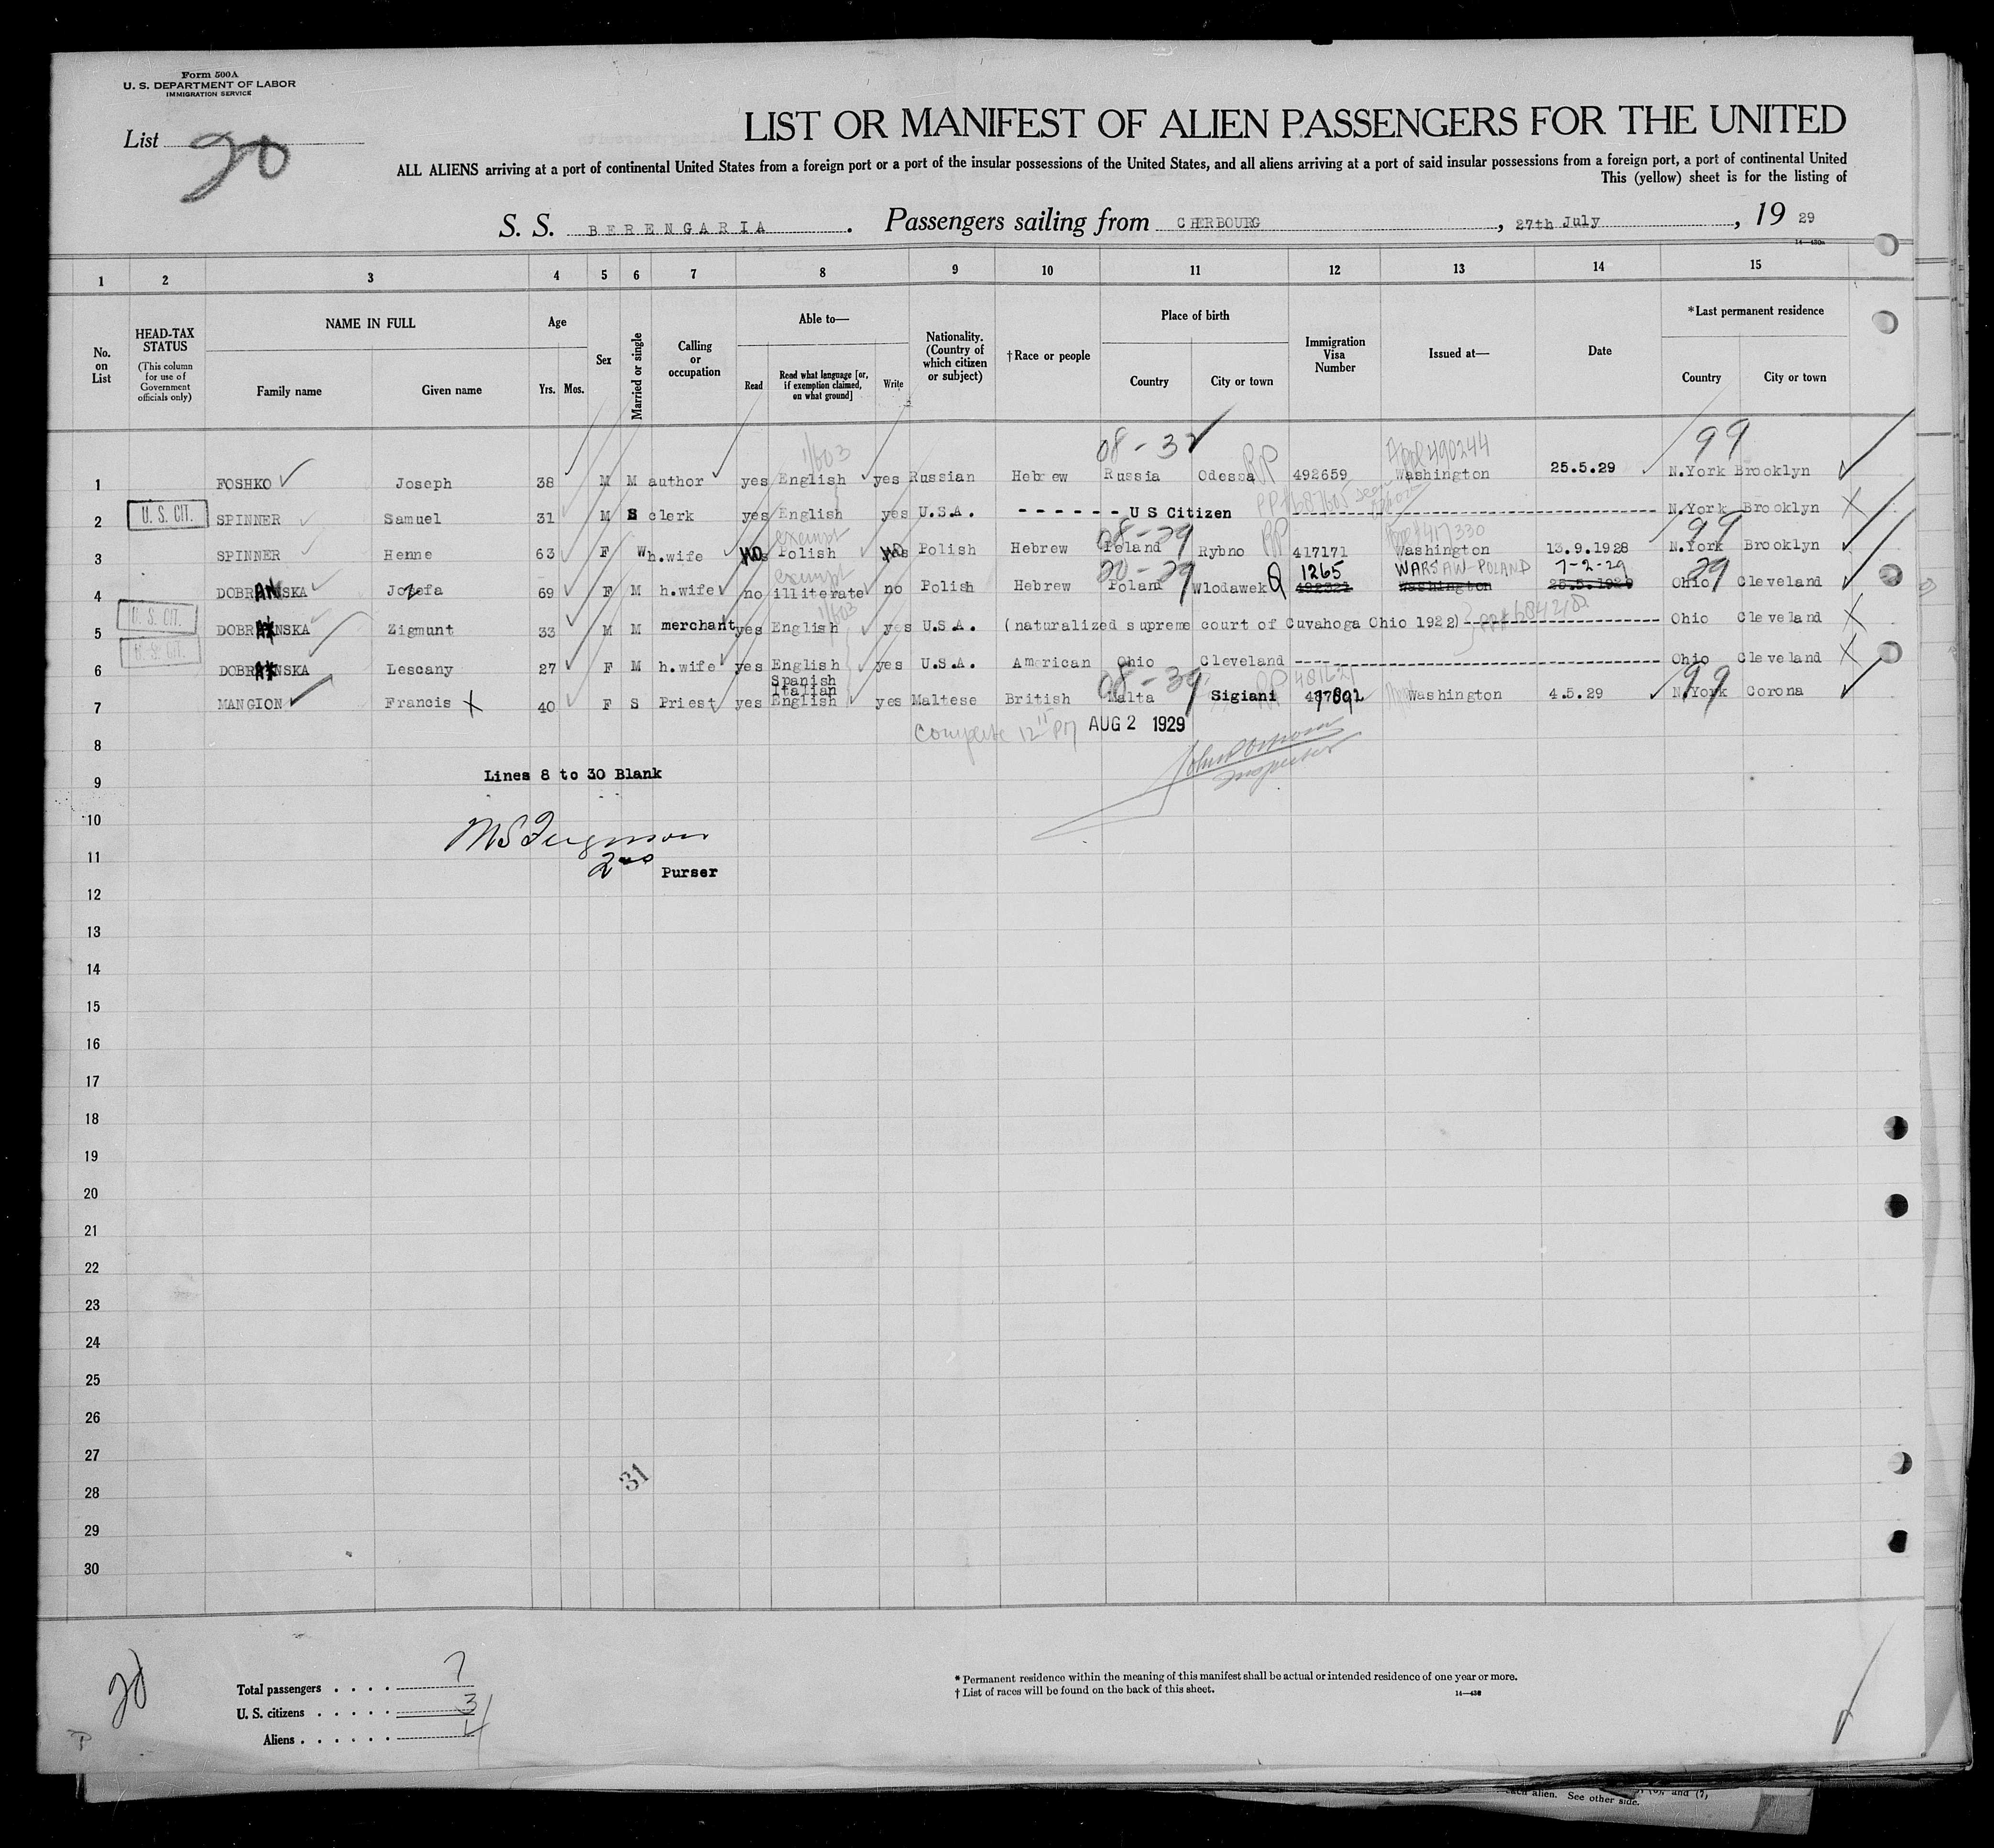 Form 500A
U. S. DEPARTMENT OF LABOR
IMMIGRATION SERVICE
List 20
LIST OR MANIFEST OF ALIEN PASSENGERS FOR THE UNITED
ALL ALIENS arriving at a port of continental United States from a foreign port or a port of the insular possessions of the United States, and all aliens arriving at a port of said insular possessions from a foreign port, a port of continental United
This (yellow) sheet is for the listing of
S. S. BERENGARIA. Passengers sailing from CHERBOURG, 27th July, 19 29
14—430a
1 2 3 4 5 6 7 8 9 10 11 12 13 14 15
No. on List
HEAD-TAX STATUS
(This column for use of Government officials only)
NAME IN FULL
Family name Given name
Age
Yrs. Mos.
Sex
Married or single
Calling or occupation
Able to—
Read
Read what language [or, if exemption claimed, on what ground]
Write
Nationality. (Country of which citizen or subject)
†Race or people
Place of birth
Country City or town
Immigration Visa Number
Issued at—
Date
*Last permanent residence
Country City or town
08-32 99
1/603 Appl 490244
1 FOSHKO Joseph 38 M M author yes English yes Russian Hebrew Russia Odessa RP 492659 Washington 25.5.29 N.York Brooklyn
2 U. S. CIT. SPINNER Samuel 31 M S clerk yes English yes U.S.A. - - - - - - US Citizen N.York Brooklyn
exempt 08-29 RP 417330 99
3 SPINNER Henne 63 F W h.wife no Polish no Polish Hebrew Poland Rybno 417171 Washington 13.9.1928 N.York Brooklyn
exempt 20-29 1265 WARSAW-POLAND 7-2-29 29
4 DOBRANSKA Jozefa 69 F M h.wife no illiterate no Polish Hebrew Poland Wlodawek Q 492321 Washington 25.5.1929 Ohio Cleveland
1/603
5 U. S. CIT. DOBRANSKA Zigmunt 33 M M merchant yes English yes U.S.A. (naturalized supreme court of Cuvahoga Ohio 1922) Ohio Cleveland
6 U. S. CIT. DOBRANSKA Lescany 27 F M h.wife yes English yes U.S.A. American Ohio Cleveland Ohio Cleveland
Spanish
Italian 08-39 RP 99
7 MANGION Francis 40 F S Priest yes English yes Maltese British Malta Sigiani Washington 4.5.29 N.York Corona
Complete 12 15 PM AUG 2 1929
8
Inspector
Lines 8 to 30 Blank
9
10
M S Ferguson
11
2nd Purser
12
13
14
15
16
17
18
19
20
21
22
23
24
25
26
27
31
28
29
30
20
Total passengers . . . . 7
U. S. citizens . . . . . 3
Aliens . . . . . . 4
* Permanent residence within the meaning of this manifest shall be actual or intended residence of one year or more.
† List of races will be found on the back of this sheet.
14—430
each alien. See other side.
and (7,